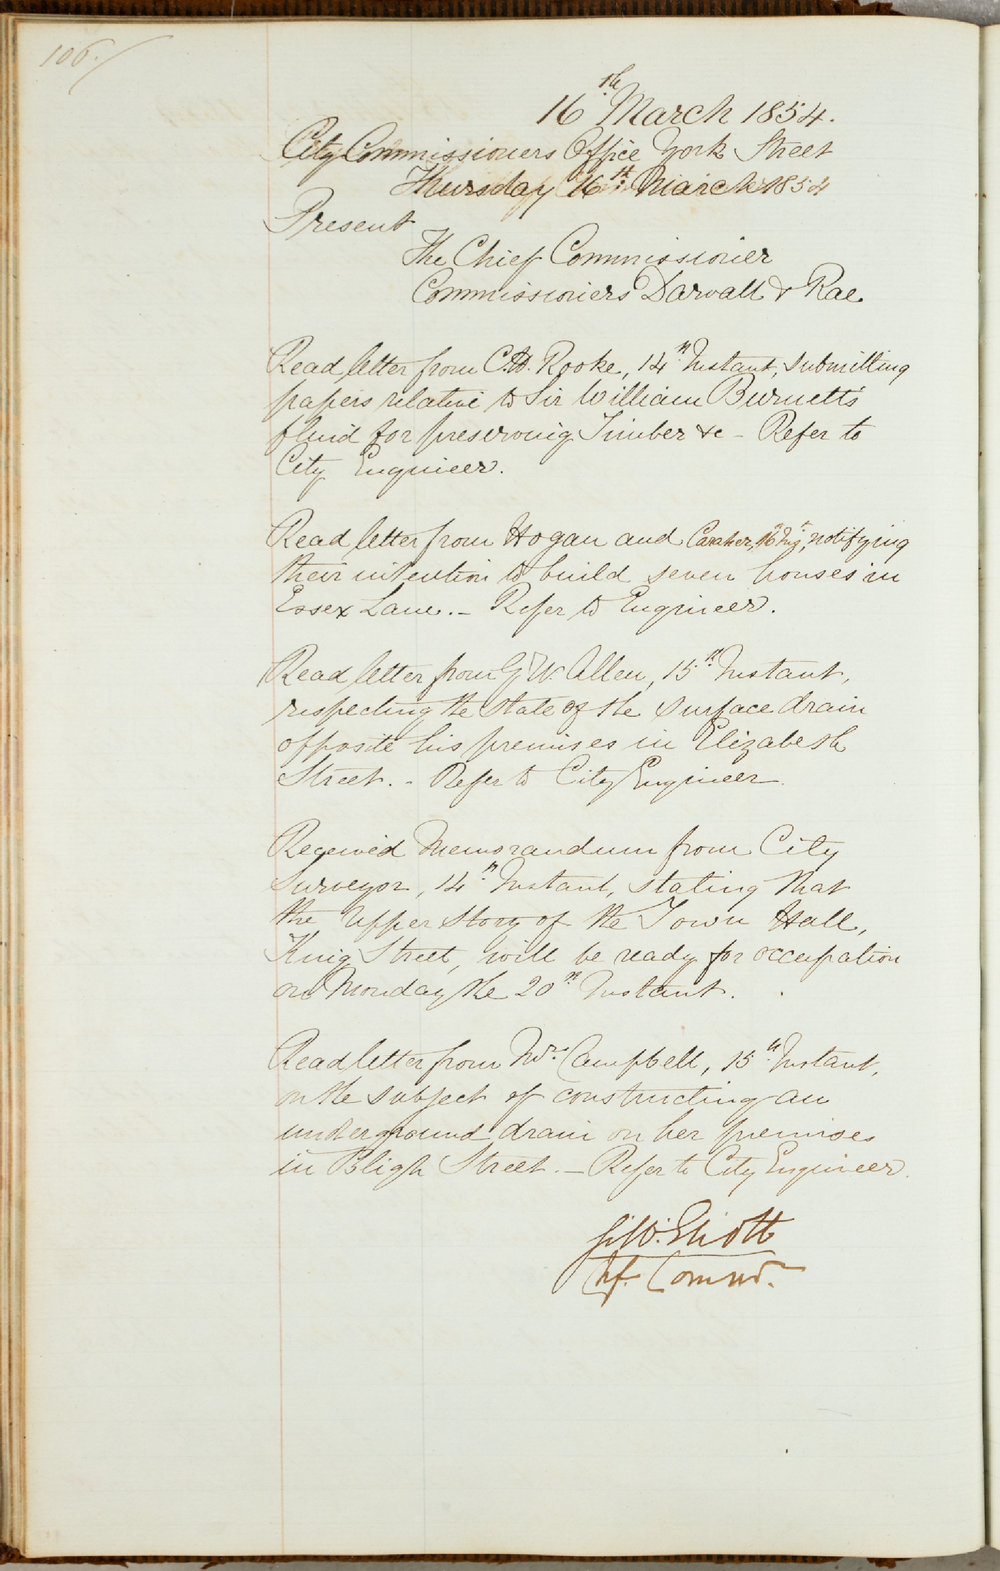 106.
16th March 1854.
City Commissioners Office York Street
Thursday 16th March 1854
Present
The Chief Commissioner
Commissioners Darvall & Rae
Read letter from C.H. Rooke, 14th Instant, submitting
papers relative to Sir William Burnett's
fluid for preserving Timber &c – Refer to
City Engineer.
Read letter from Hogan and Caraher, 16th Inst, notifying
their intention to build seven houses in
Essex Lane. – Refer to Engineer.
Read letter from G W. Allen, 15th Instant,
respecting the state of the surface drain
opposite his premises in Elizabeth
Street. – Refer to City Engineer
Received Memorandum from City
Surveyor, 14th Instant, stating that
the upper story of the Town Hall,
King Street, will be ready for occupation
on Monday the 20th Instant.
Read letter from Mrs. Campbell, 15th Instant,
on the subject of constructing an
underground drain on her premises
in Bligh Street. – Refer to City Engineer.
G. W. Eliott
Chf. Commr.